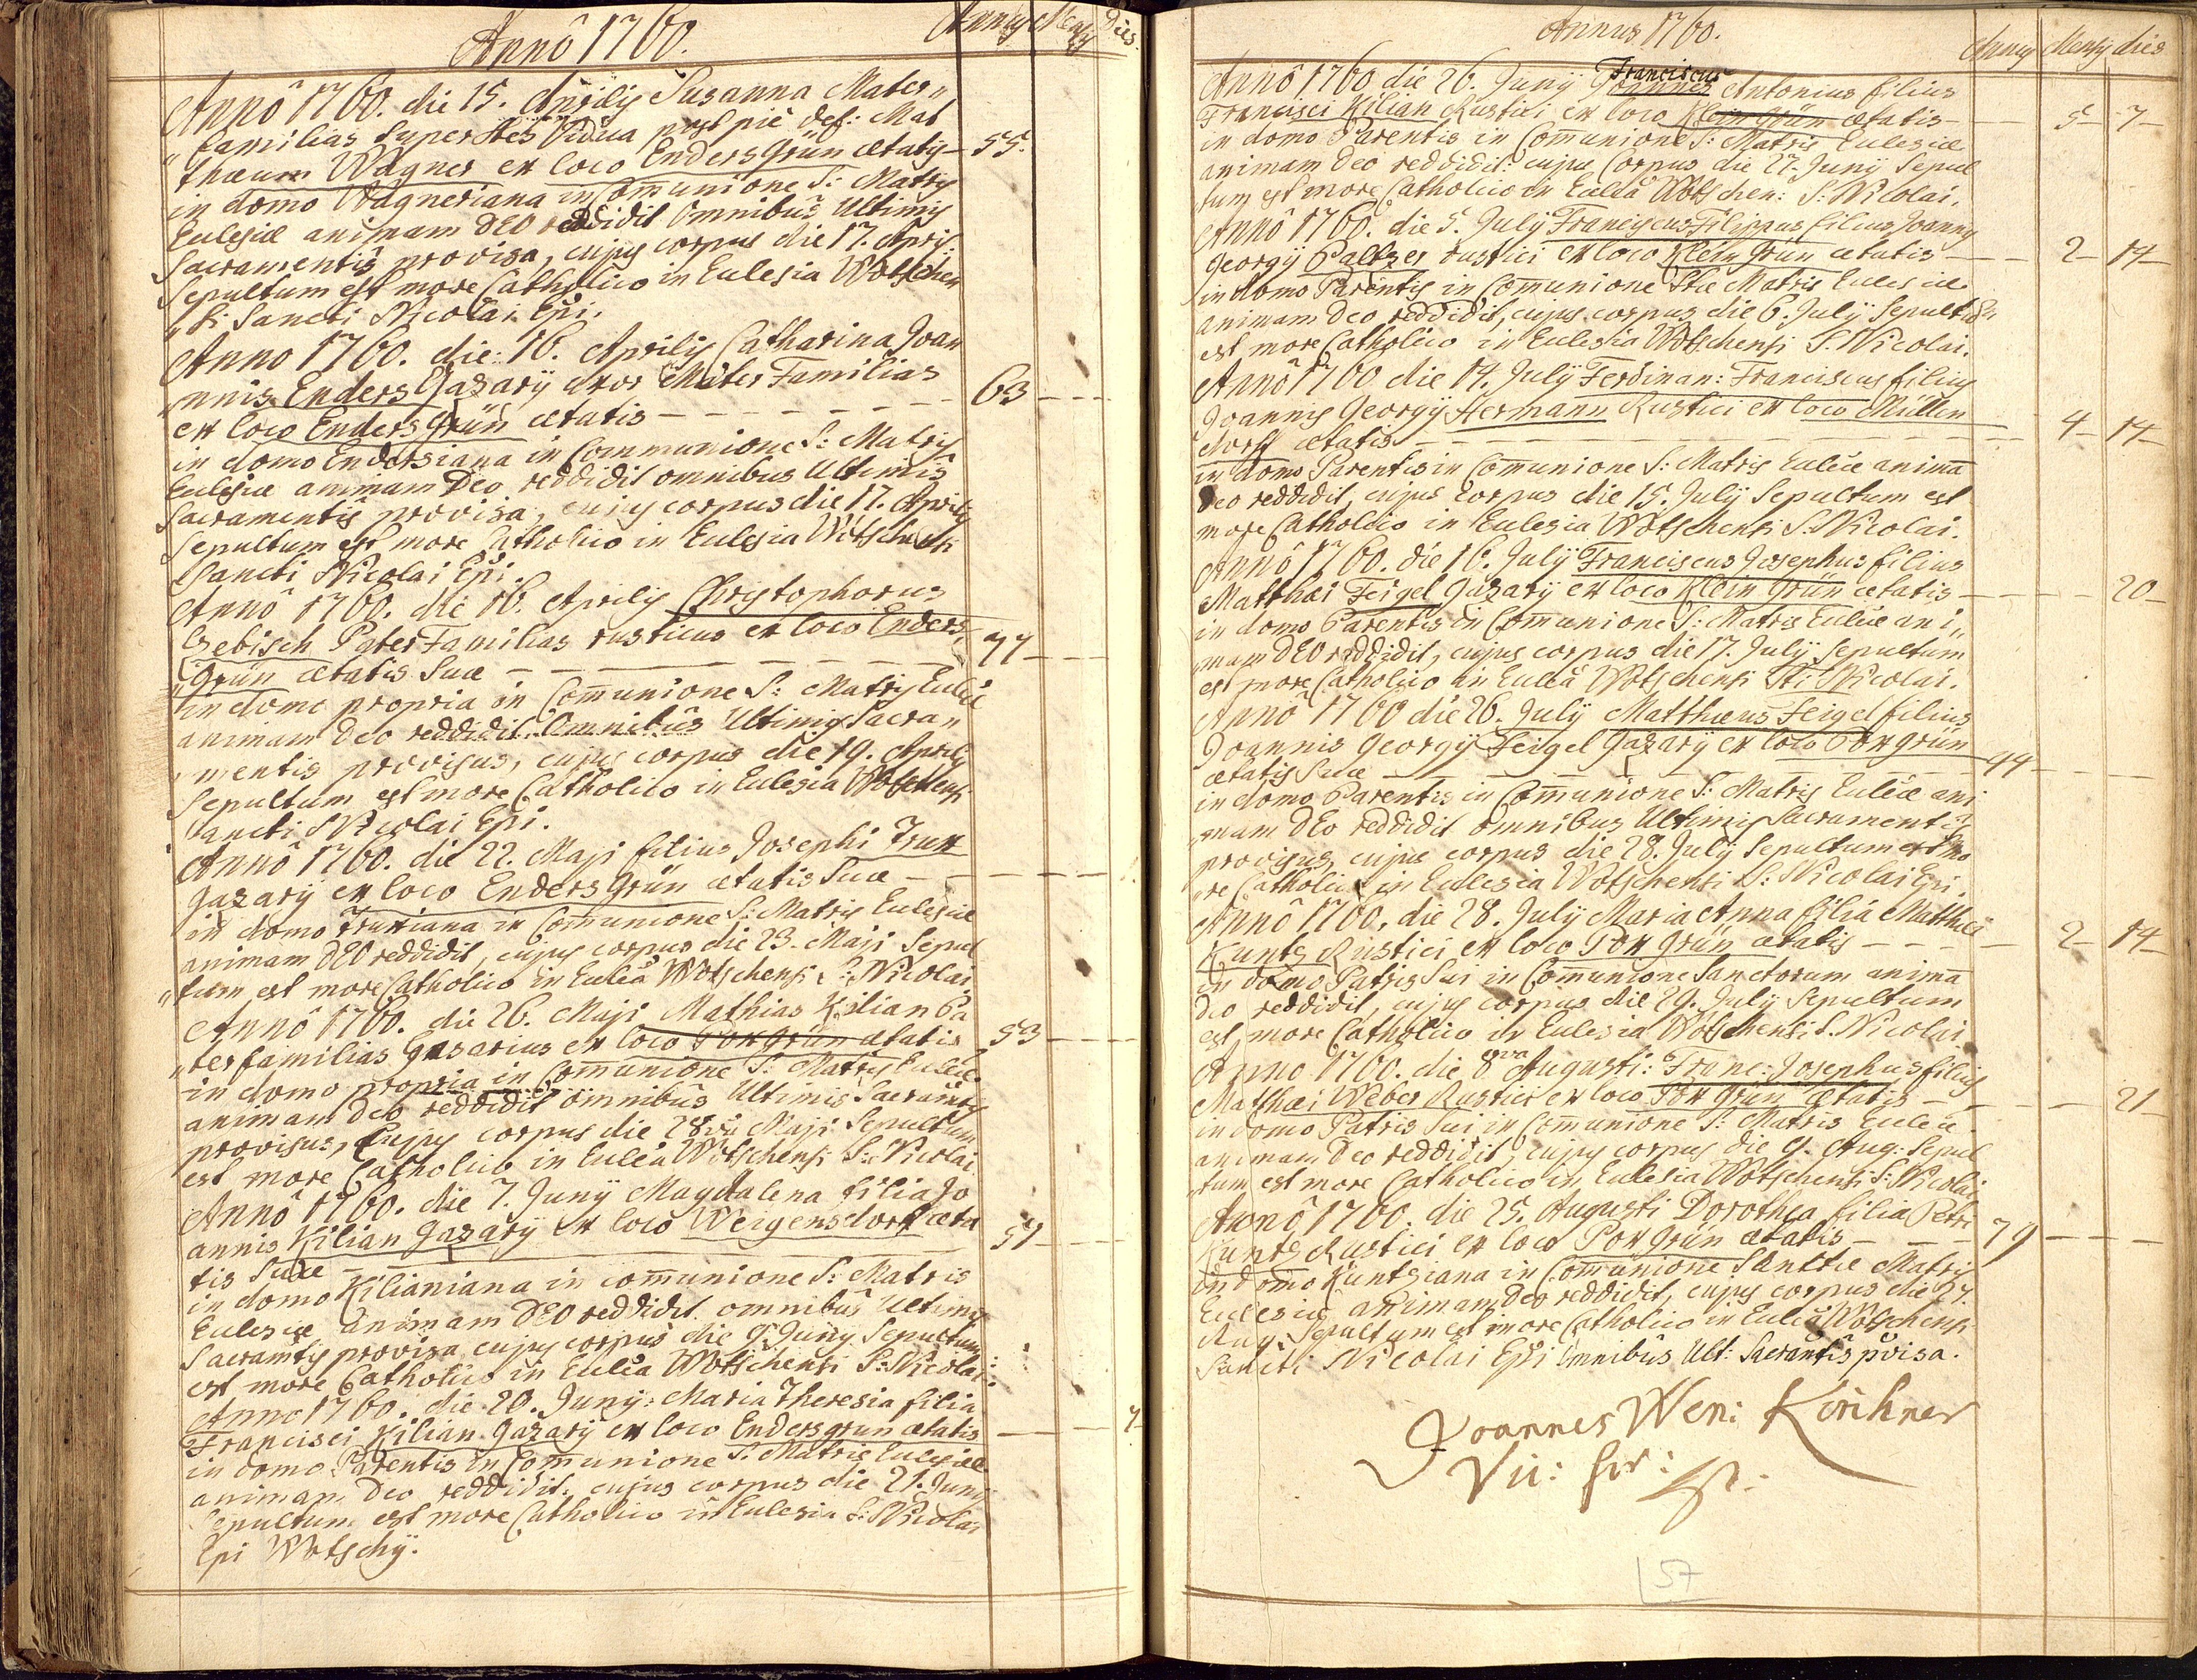 Annô 1760.
Annus Mensis Dies.
Annô 1760. die 15. Aprilis Susanna Mater„
„familias Superstes Vidua post piè def: Mat
thæum Wagner ex loco Endersgrün ætatis — 55.
in domo Wagneriana in Com̄unione S: Matris
Ecclesiæ animam DEO reddidit Omnibus Ultimis
Sacramentis provisa, cujus corpus die 17. Apris.
Sepultum est more Catholico in Ecclesia Wotschen
„si Sancti Nicolai Epi.
Anno 1760. die: 16. Aprilis Catharina Joan
„nnis Enders Gazarÿ uxor Mater Familias
ex loco Enders Grün ætatis — 63
in domo Endersiana in Communione S: Matris
Ecclesiæ animam Deo reddidit omnibus Ultimis
Sacramentis provisa, cujus corpus die 17. Aprilis
Sepultum est more Catholico in Ecclesia Wotschensi
Sancti Nicolai Epi.
Annô 1760. die 16. Aprilis Christophorus
Gebisch Pater Familias rusticus ex loco Enders„
„Grün ætatis Suæ — 77
in domo propria in Com̄unione S: Matris Eccliæ
animam Deo reddidit Omnibus Ultimis Sacra„
„mentis provisus, cujus corpus die 19. Aprilis
Sepultum est more Catholico in Ecclesia Wotschensi
Sancti Nicolai Epi.
Annô 1760. die 22. Maji filius Josephi Trux
Gazarÿ ex loco Enders Grün ætatis Suæ —
in domo Truxiana in Com̄unione S: Matris Ecclesiæ
animam DEO reddidit, cujus corpus die 23. Maji Sepul
„tum est more Catholico in Eccleā Wotschensi S: Nicolai.
Annô 1760. die 26. Maji Mathias Kilian Pa
„ter familias Gazarius ex loco Pox Grün ætatis 53
in domo propria in Com̄unione S: Matris Eccleæ
animam Deo reddidit omnibus Ultimis Sacramtis
provisus, Cujus corpus die 28va Maji Sepultum
est more Catholico in Ecclea Wotschensi S: Nicolai
Annô 1760. die 7. Junÿ Magdalena filia Jo
annis Kilian Gazarÿ ex loco Weigensdorf æta
tis Suæ — 51
in domo Kilianiana in com̄unione S: Matris
Ecclesiæ animam DEO reddidit omnibus Ultimis
Sacramtis provisa cujus corpus die 9. Junÿ Sepultum
est more Catholico in Ecclea Wotschensi S: Nicolai
Anno 1760. die 20. Junÿ: Maria Theresia filia
Francisci Kilian Gazarÿ ex loco Endersgrun ætatis — 7
in domo Parentis in Com̄unione S: Matris Ecclesiæ
animam Deo reddidit, cujus corpus die 21. Junÿ
Sepultum est more Catholico in Ecclesia S: Nicolai
Epi Wotschÿ.
Annus 1760.
Annus Mensis dies
Franciscus
Annô 1760 die 26. Junÿ Joannes Antonius filius
Francisci Kilian Rustici ex loco Klein Grün ætatis — 5 7
in domo Parentis in Com̄unione S: Matris Ecclesiæ
animam Deo reddidit: cujus Corpus die 27. Junÿ Sepul
„tum est more Catholico in Eccleâ Wotschen: S: Nicolai.
Annô 1760. die 5. Julÿ Franciscus Filippus filius Joannis
Georgÿ Paltzer rustici ex loco Klein Grün ætatis — 2 14
in domo Parentis in Com̄unione Stæ Matris Ecclesiæ
animam Deo reddidit, cujus corpus die 6. Julÿ Sepultum
est more Catholico in Ecclesia Wotschensi S. Nicolai.
Annô 1760 die 14. Julÿ Ferdinan: Franciscus filius
Joannis Georgÿ Hermann Rustici ex loco Müllen
dorff ætatis — 4 14
in domo Parentis in Com̄unione S: Matris Eccleæ animā
Deo reddidit, cujus Corpus die 15. Julÿ Sepultum est
more Catholico in Ecclesia Wotschensi S. Nicolai.
Annô 1760. die 16. Julÿ Franciscus Josephus filius
Matthæi Feigel Gazarÿ ex loco Klein Grün ætatis — 20
in domo Parentis in Com̄unione S: Matris Eccleæ ani„
„mam DEO reddidit, cujus corpus die 17. Julÿ Sepultum
est more Catholico in Eccleâ Wotschensi Sti Nicolai.
Annô 1760 die 26. Julÿ Matthæus Feigel filius
Joannis Georgÿ Feigel Gazarÿ ex loco Pox grün
ætatis Suæ — 44
in domo Parentis in Com̄unione S: Matris Eccleæ ani
mam DEo reddidit omnibus Ultimis Sacramentis
provisus, cujus corpus die 28. Julÿ Sepultum est mo
„re Catholico in Ecclesia Wotschensi S: Nicolai Epi.
Annô 1760. die 28. Julÿ Maria Anna filia Matthæi
Kuntz Rustici ex loco Pox Grün ætatis — 2 14
in domo Patris Sui in Com̄unione Sanctorum animā
Deo reddidit, cujus corpus die 29. Julÿ Sepultum
est more Catholico in Ecclesia Wotschensi S. Nicolai.
Anno 1760. die 8va Augusti: Franc: Josephus filius
Matthæi Weber Rustici ex loco Pox Grün ætatis — 21
in domo Patris Sui in Com̄unione S: Matris Eccleæ
animam Deo reddidit, cujus corpus die 9. Aug: Sepul
„tum est more Catholico in Ecclesia Wotschensi S: Nicolai
Annô 1760. die 25. Augusti Dorothea filia Petri
Kuntz Rustici ex loco Pox Grün ætatis — 79
in domo Kuntziana in Com̄unione Sanctæ Matris
Ecclesiæ animam Deo reddidit, cujus corpus die 27.
Aug: Sepultum est more Catholico in Eccleâ Wotschensi
Sancti Nicolai Epi Omnibûs Ult: Sacramtis pvisa.
Joannes Wen: Kirchner
57